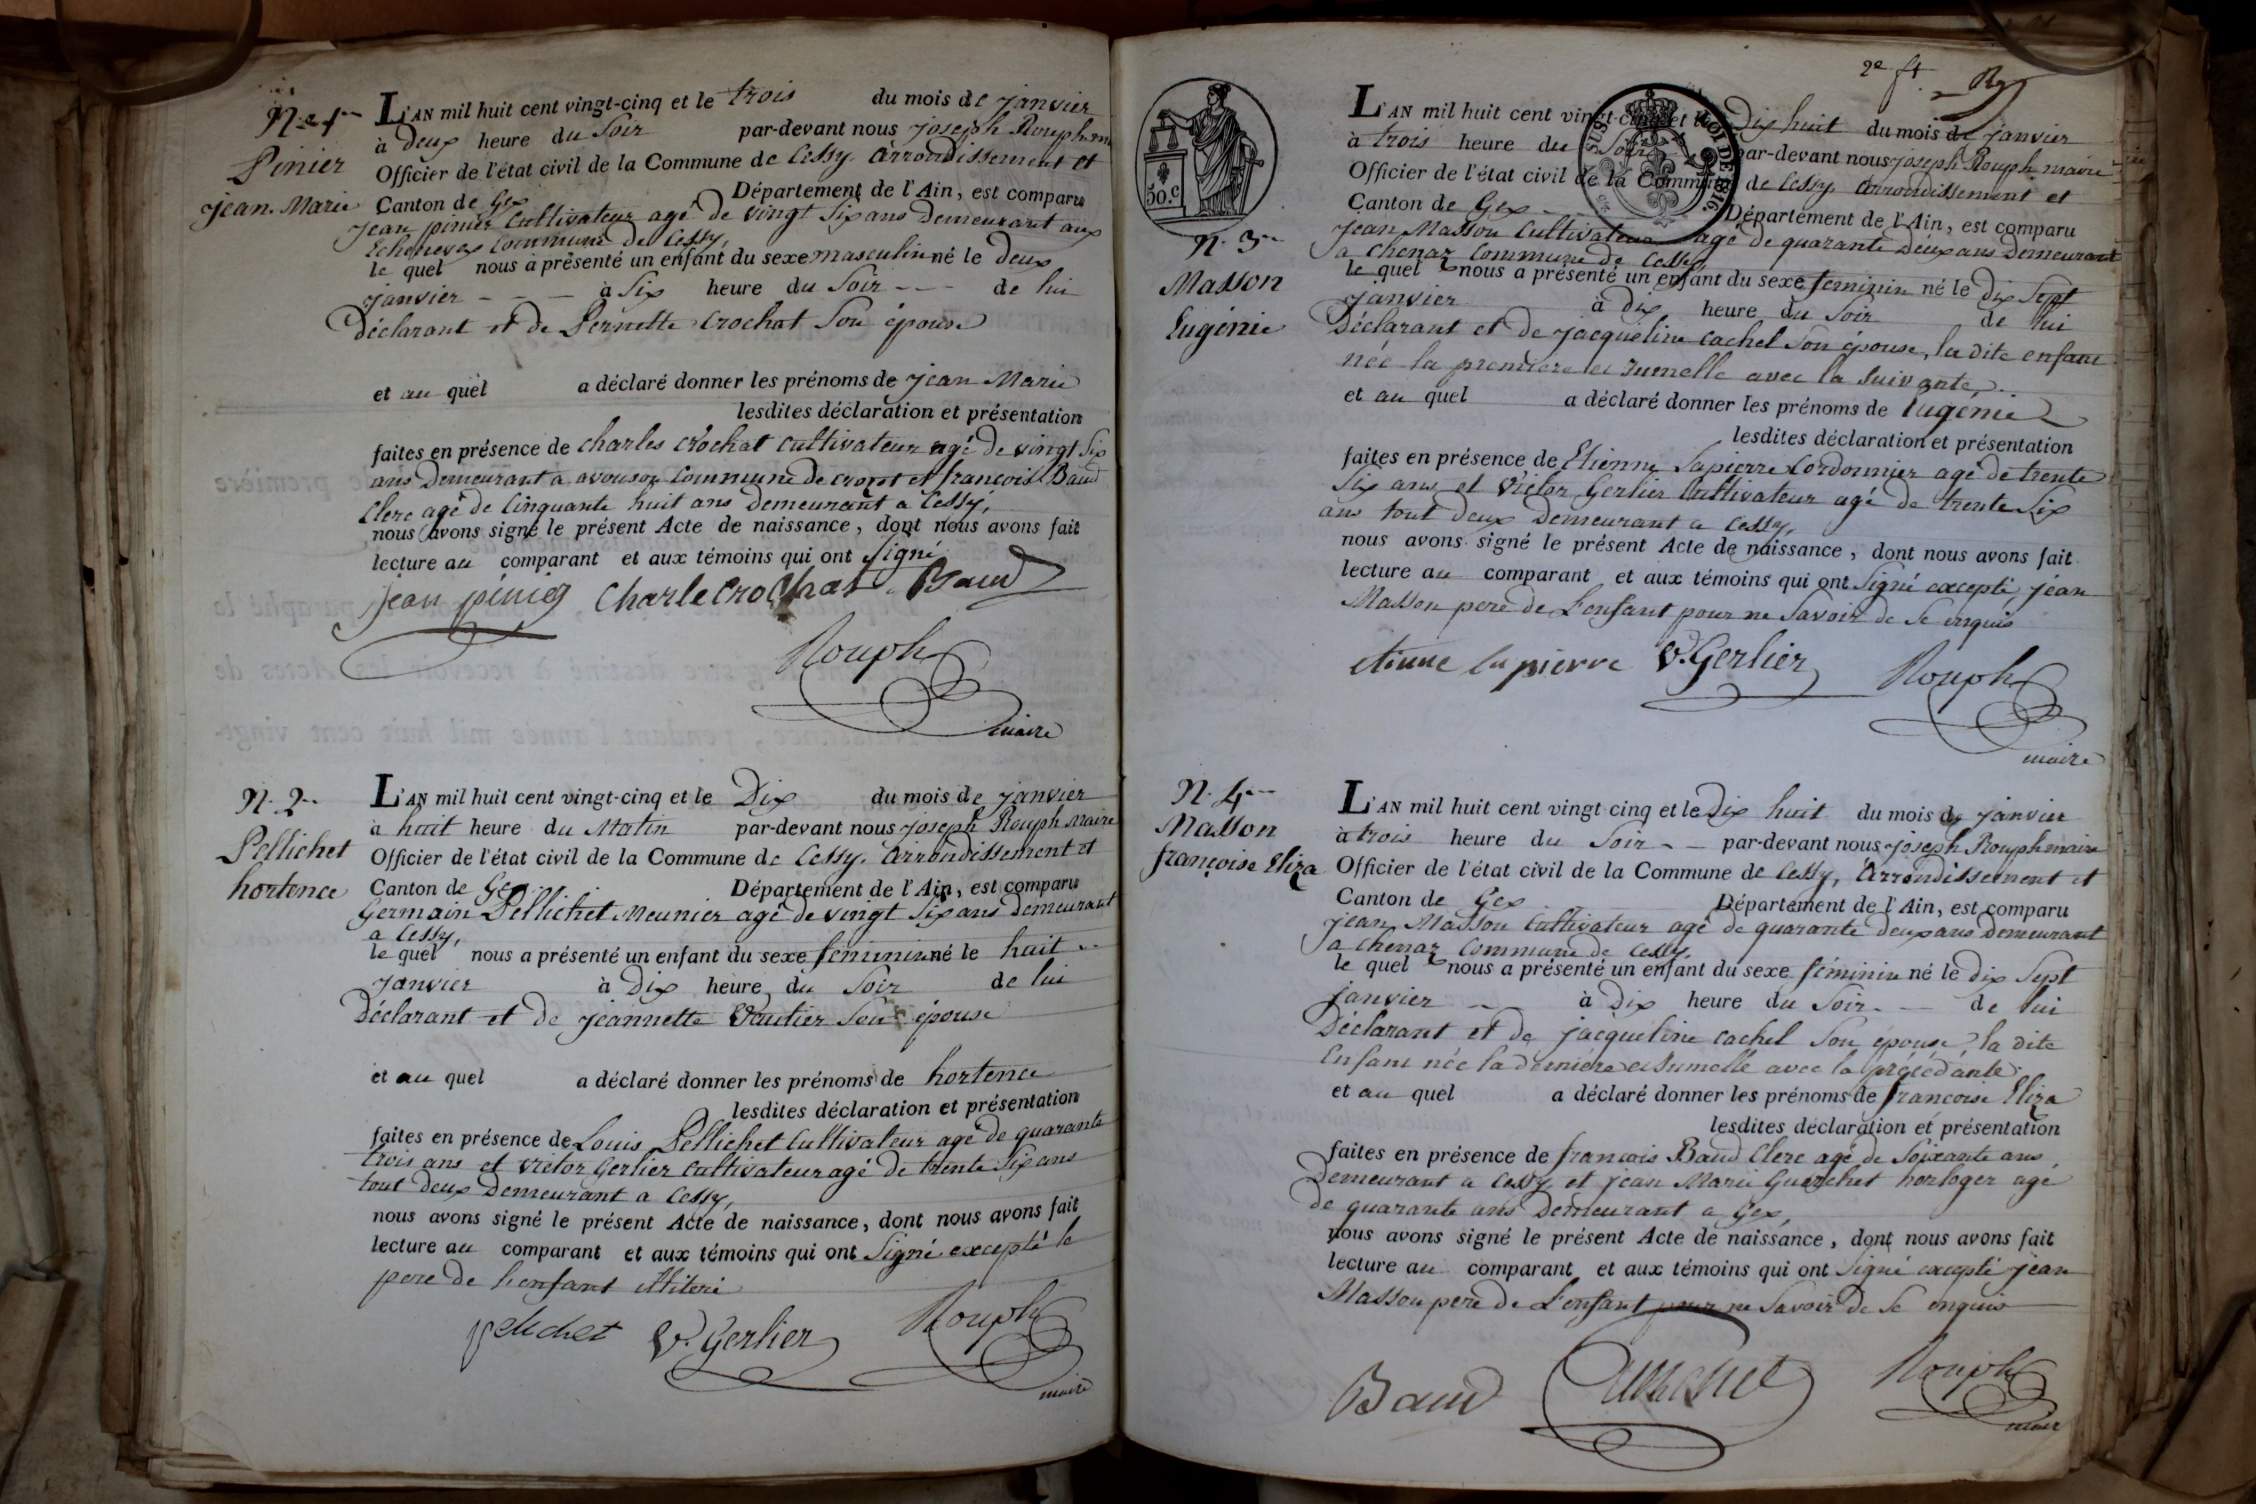 N. 1er
Pinier
jean. Marie
L'AN mil huit cent vingt-cinq et le trois du mois de janvier
à deux heure du Soir par-devant nous joseph Rouph m
Officier de l'état civil de la Commune de Cessy. arrondissement et
Canton de Gex Département de l'Ain, est comparu
jean pinier Cultivateur agé de vingt Six ans demeurant aux
Echenevex Commune de Cessy,
le quel nous a présenté un enfant du sexe masculin né le deux
janvier - - - à Six heure du Soir - - - de lui
Déclarant et de Pernette Crochat Son épouse
et au quel a déclaré donner les prénoms de jean Marie
lesdites déclaration et présentation
faites en présence de charles crochat cultivateur agé de vingt Six
ans Demeurant a avouson Commune de crozet et françois Baud
Clerc agé de Cinquante huit ans demeurant a Cessy,
nous avons signé le présent Acte de naissance, dont nous avons fait
lecture au comparant et aux témoins qui ont Signé
jean pinier Charle crochat Baud
Rouph
maire
N. 2
Pellichet
hortence
L'AN mil huit cent vingt-cinq et le Dix du mois de janvier
à huit heure du Matin par-devant nous joseph Rouph Maire
Officier de l'état civil de la Commune de Cessy. Arrondissement et
Canton de Gex Département de l'Ain, est comparu
Germain Pellichet Meunier agé de vingt Six ans demeurant
a Cessy,
le quel nous a présenté un enfant du sexe feminin né le huit
janvier à Dix heure du Soir de lui
Déclarant et de jeannette Vautier Son épouse
et au quel a déclaré donner les prénoms de hortence
lesdites déclaration et présentation
faites en présence de Louis Pellichet Cultivateur agé de quarante
trois ans et victor Gerlier cultivateur agé de trente Six ans
tout deux Demeurant a Cessy,
nous avons signé le présent Acte de naissance, dont nous avons fait
lecture au comparant et aux témoins qui ont Signé excepté le
pere de lenfant illiteré
pelichet V. Gerlier Rouph
maire
2e ft.
50.c
N. 3
Masson
Eugénie
L'AN mil huit cent vingt-cinq et le Dix huit du mois de janvier
à trois heure du Soir par-devant nous joseph Rouph maire
Officier de l'état civil de la Commune de Cessy. arrondissement et
Canton de Gex - Département de l'Ain, est comparu
jean Masson Cultivateur agé de quarante Deux ans Demeurant
a chenaz Commune de Cessy,
le quel nous a présenté un enfant du sexe feminin né le dix Sept
janvier à dix heure du Soir de lui
Déclarant et de jacqueline cachel Son épouse, la dite enfant
née la premiere et Jumelle avec la Suivante.
et au quel a déclaré donner les prénoms de Eugénie
lesdites déclaration et présentation
faites en présence de Etienne Lapierre Cordonnier agé de trente
Six ans et Victor Gerlier Cultivateur agé de trente Six
ans tout deux Demeurant a Cessy,
nous avons signé le présent Acte de naissance, dont nous avons fait
lecture au comparant et aux témoins qui ont Signé excepté jean
Masson pere de L'enfant pour ne Savoir de Se enquis
etienne lapierre V. Gerlier Rouph
maire
N. 4
Masson
françoise Eliza
L'AN mil huit cent vingt-cinq et le Dix huit du mois de janvier
à trois heure du Soir - - par-devant nous joseph Rouph maire
Officier de l'état civil de la Commune de Cessy, Arrondissement et
Canton de Gex Département de l'Ain, est comparu
jean Masson Cultivateur agé de quarante deux ans Demeurant
a chenaz Commune de Cessy.
le quel nous a présenté un enfant du sexe féminin né le dix Sept
janvier - à Dix heure du Soir - - de lui
Déclarant et de jacqueline cachel Son épouse, la dite
Enfant née la derniére et Jumelle avec la précédante.
et au quel a déclaré donner les prénoms de françoise Eliza
lesdites déclaration et présentation
faites en présence de francois Baud Clerc agé de Soixante ans,
Demeurant a Cessy et jean Marie Guerchet horloger agé
de quarante ans Demeurant a Gex,
nous avons signé le présent Acte de naissance, dont nous avons fait
lecture au comparant et aux témoins qui ont Signé excepté jean
Masson pere de L'enfant pour ne Savoir de Se enquis
Baud Rouph
maire